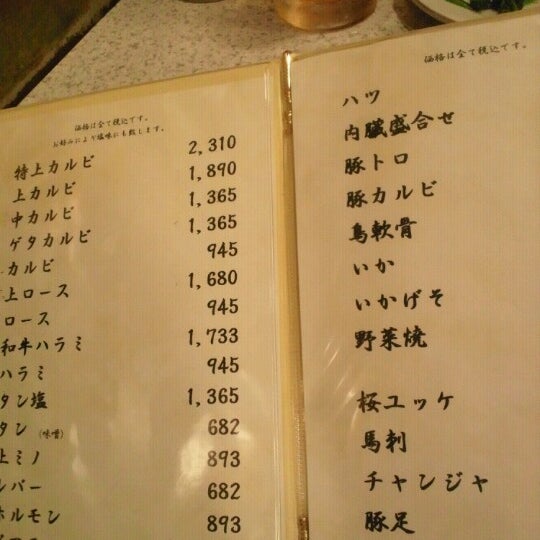 価格は全て税込です。
お好みにより塩味にも致します。
特上カルビ 2,310
上カルビ 1,890
中カルビ 1,365
ゲタカルビ 1,365
カルビ 945
上ロース 1,680
ロース 945
和牛ハラミ 1,733
ハラミ 945
タン塩 1,365
タン (味噌) 682
上ミノ 893
682
ホルモン 893
価格は全て税込です。
ハツ
内臓盛合せ
豚トロ
豚カルビ
鳥軟骨
いか
いかげそ
野菜焼
桜ユッケ
馬刺
チャンジャ
豚足